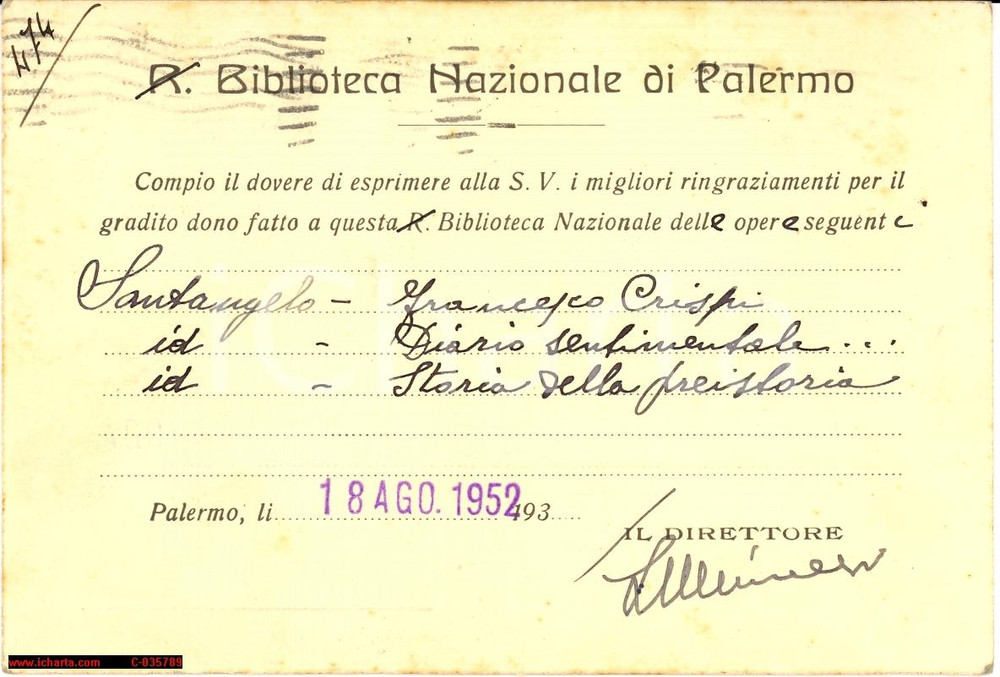 474
R. Biblioteca Nazionale di Palermo
Compio il dovere di esprimere alla S. V. i migliori ringraziamenti per il
gradito dono fatto a questa R. Biblioteca Nazionale delle opere seguenti
Santangelo - Francesco Crispi
id - Diario sentimentale...
id - Storia della preistoria
Palermo, li 18 AGO. 1952 193
IL DIRETTORE
www.icharta.com C-035789